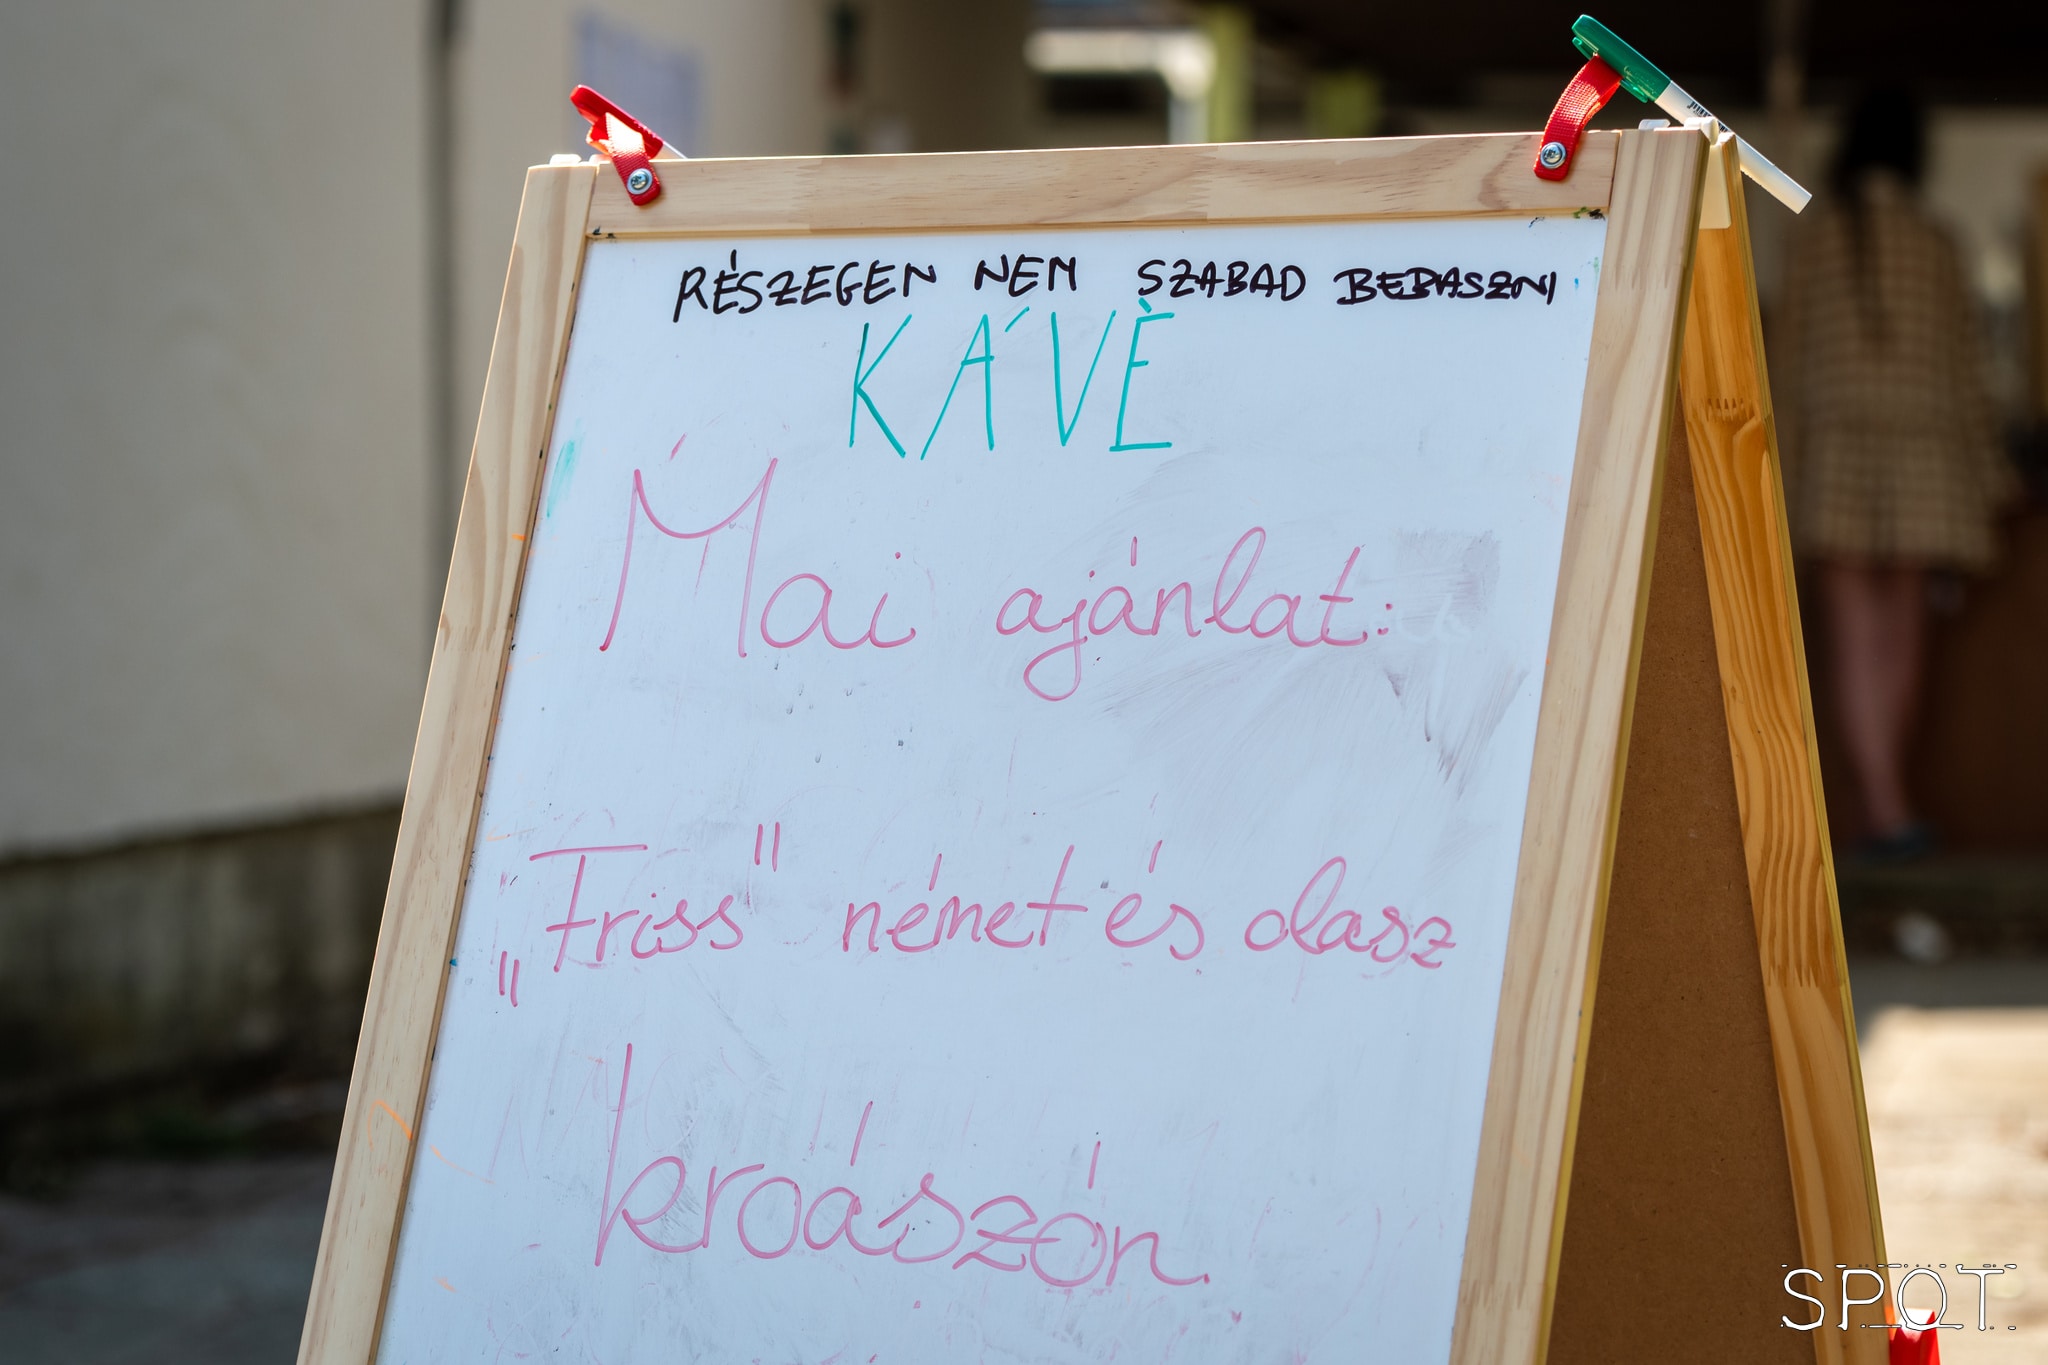 RÉSZEGEN NEM SZABAD BEBASZNI
KÁVÈ
Mai ajánlat:
„Friss" német és olasz
kroászón
SPOT